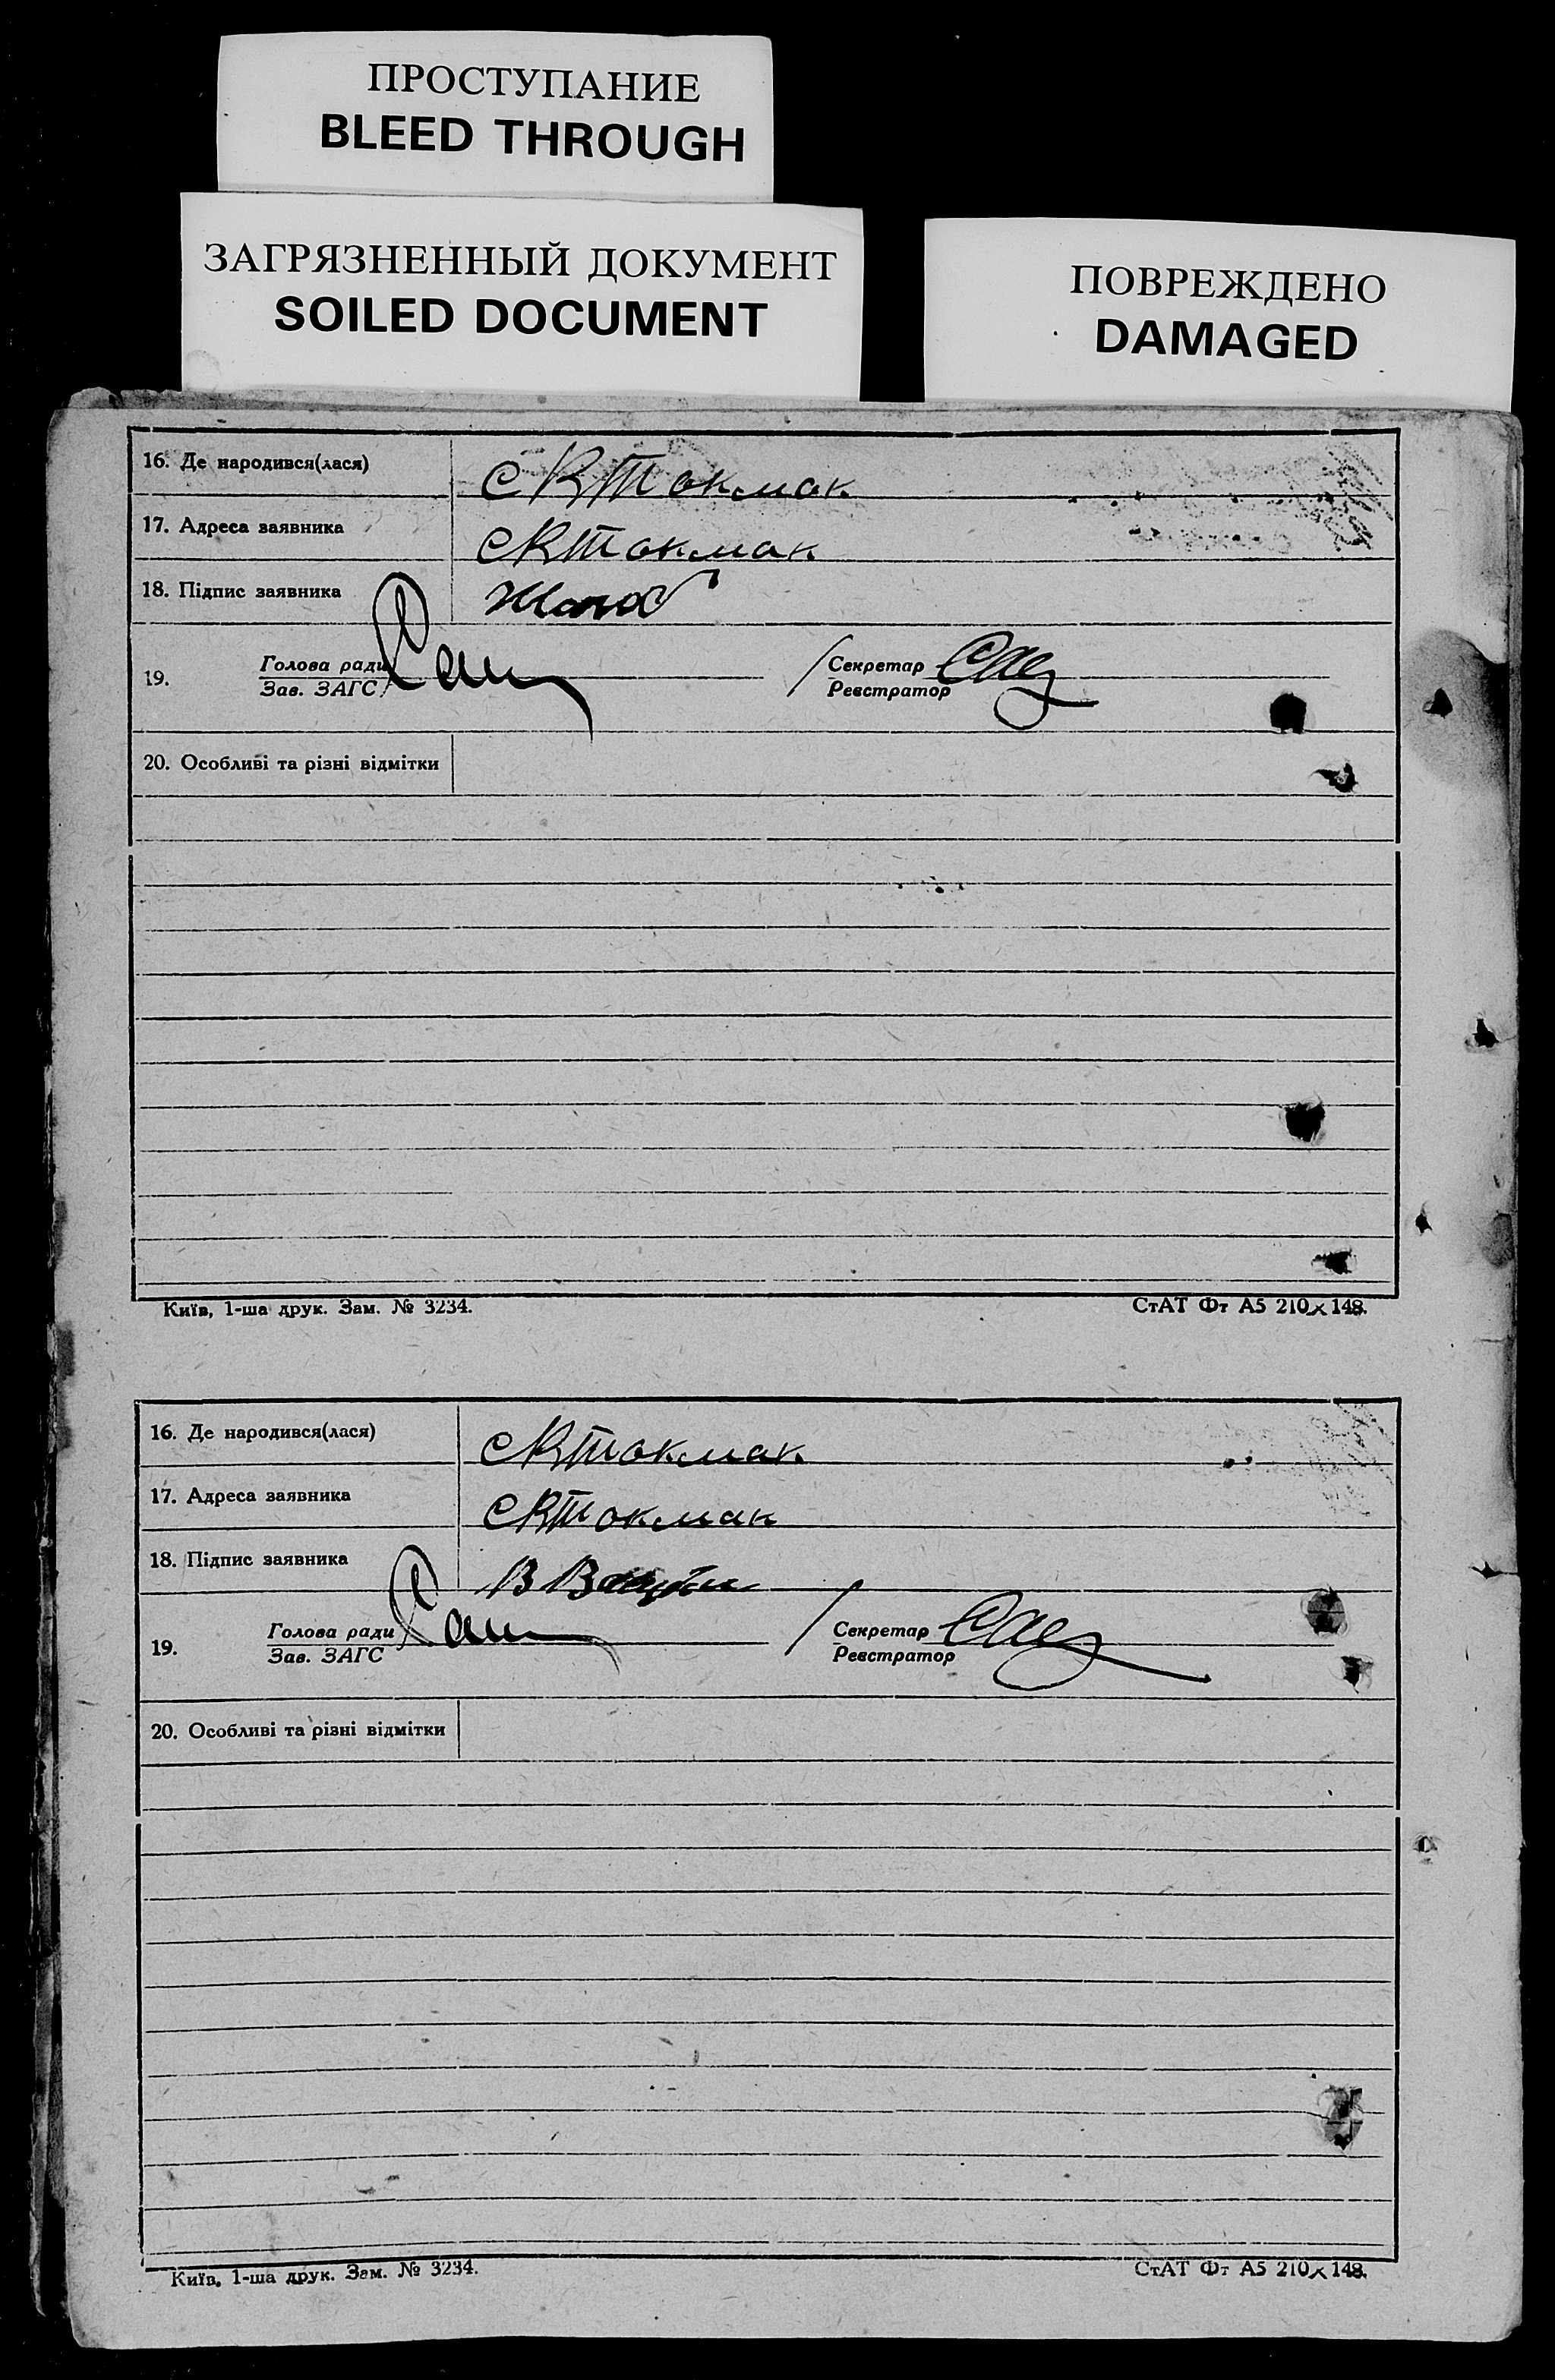 ПРОСТУПАНИЕ
BLEED THROUGH
ЗАГРЯЗНЕННЫЙ ДОКУМЕНТ
SOILED DOCUMENT
ПОВРЕЖДЕНО
DAMAGED
16. Де народився(лася) с К Токмак
17. Адреса заявника с К Токмак
18. Підпис заявника
19. Голова ради Секретар
Зав. ЗАГС Реєстратор
20. Особливі та різні відмітки
Київ, 1-ша друк. Зам. № 3234. СтАТ Фт А5 210×148.
16. Де народився(лася) с К Токмак
17. Адреса заявника с К Токмак
18. Підпис заявника
19. Голова ради Секретар
Зав. ЗАГС Реєстратор
20. Особливі та різні відмітки
Київ, 1-ша друк. Зам. № 3234. СтАТ Фт А5 210×148.